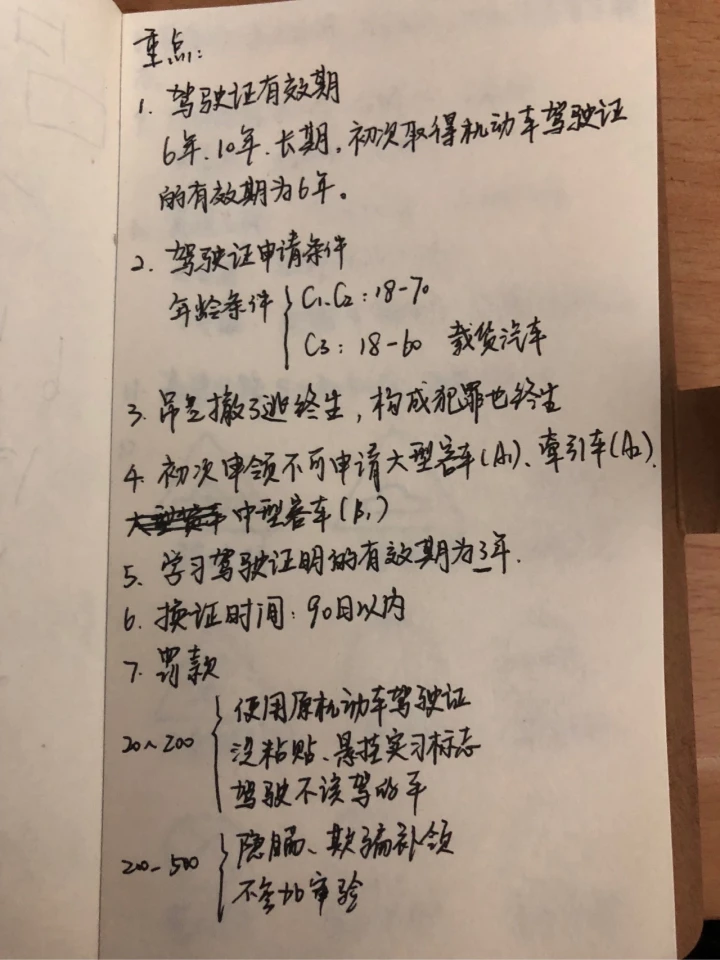 重点:
1. 驾驶证有效期
6年、10年、长期。初次取得机动车驾驶证
的有效期为6年。
2. 驾驶证申请条件
年龄条件 { C1、C2:18-70
C3:18-60 载货汽车
3. 吊 撤 3逃终生,构成犯罪也终生
4. 初次申领不可申请大型客车(A1)、牵引车(A2)、
中型客车(B1)
5、学习驾驶证明的有效期为3年.
6. 换证时间:90日以内
7. 罚款
20~200 { 使用原机动车驾驶证
没粘贴、悬挂实习标志
驾驶不该驾的车
200-500 { 隐瞒、欺骗补领
不参加审验